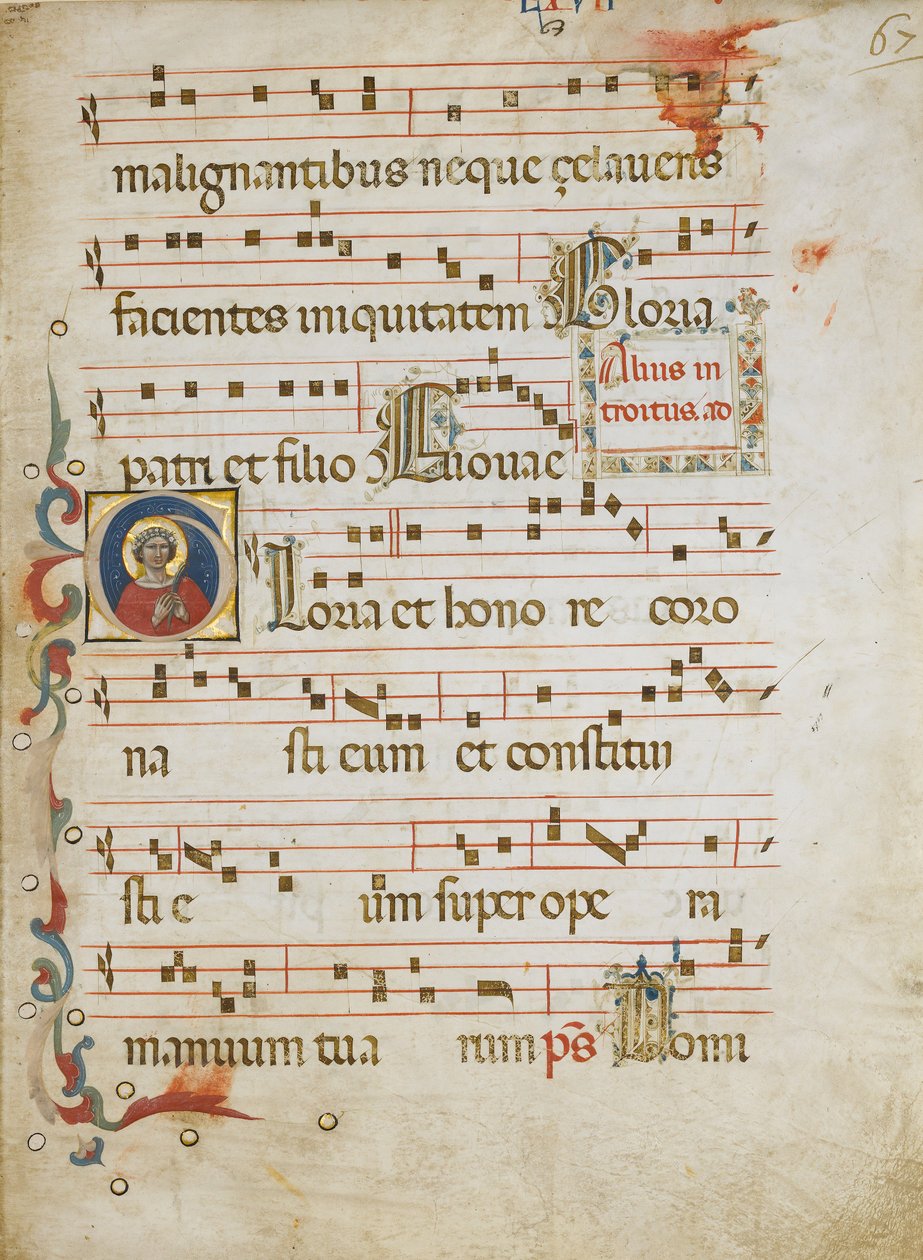 LXVII
67
malignantibus neque çelaveris
facientes iniquitatem Gloria
Alius in
troitus. ad
patri et filio Euouae
Gloria et hono re coro
na sti eum et constitui
sti e um super ope ra
manuum tua rum ps̄ Domi